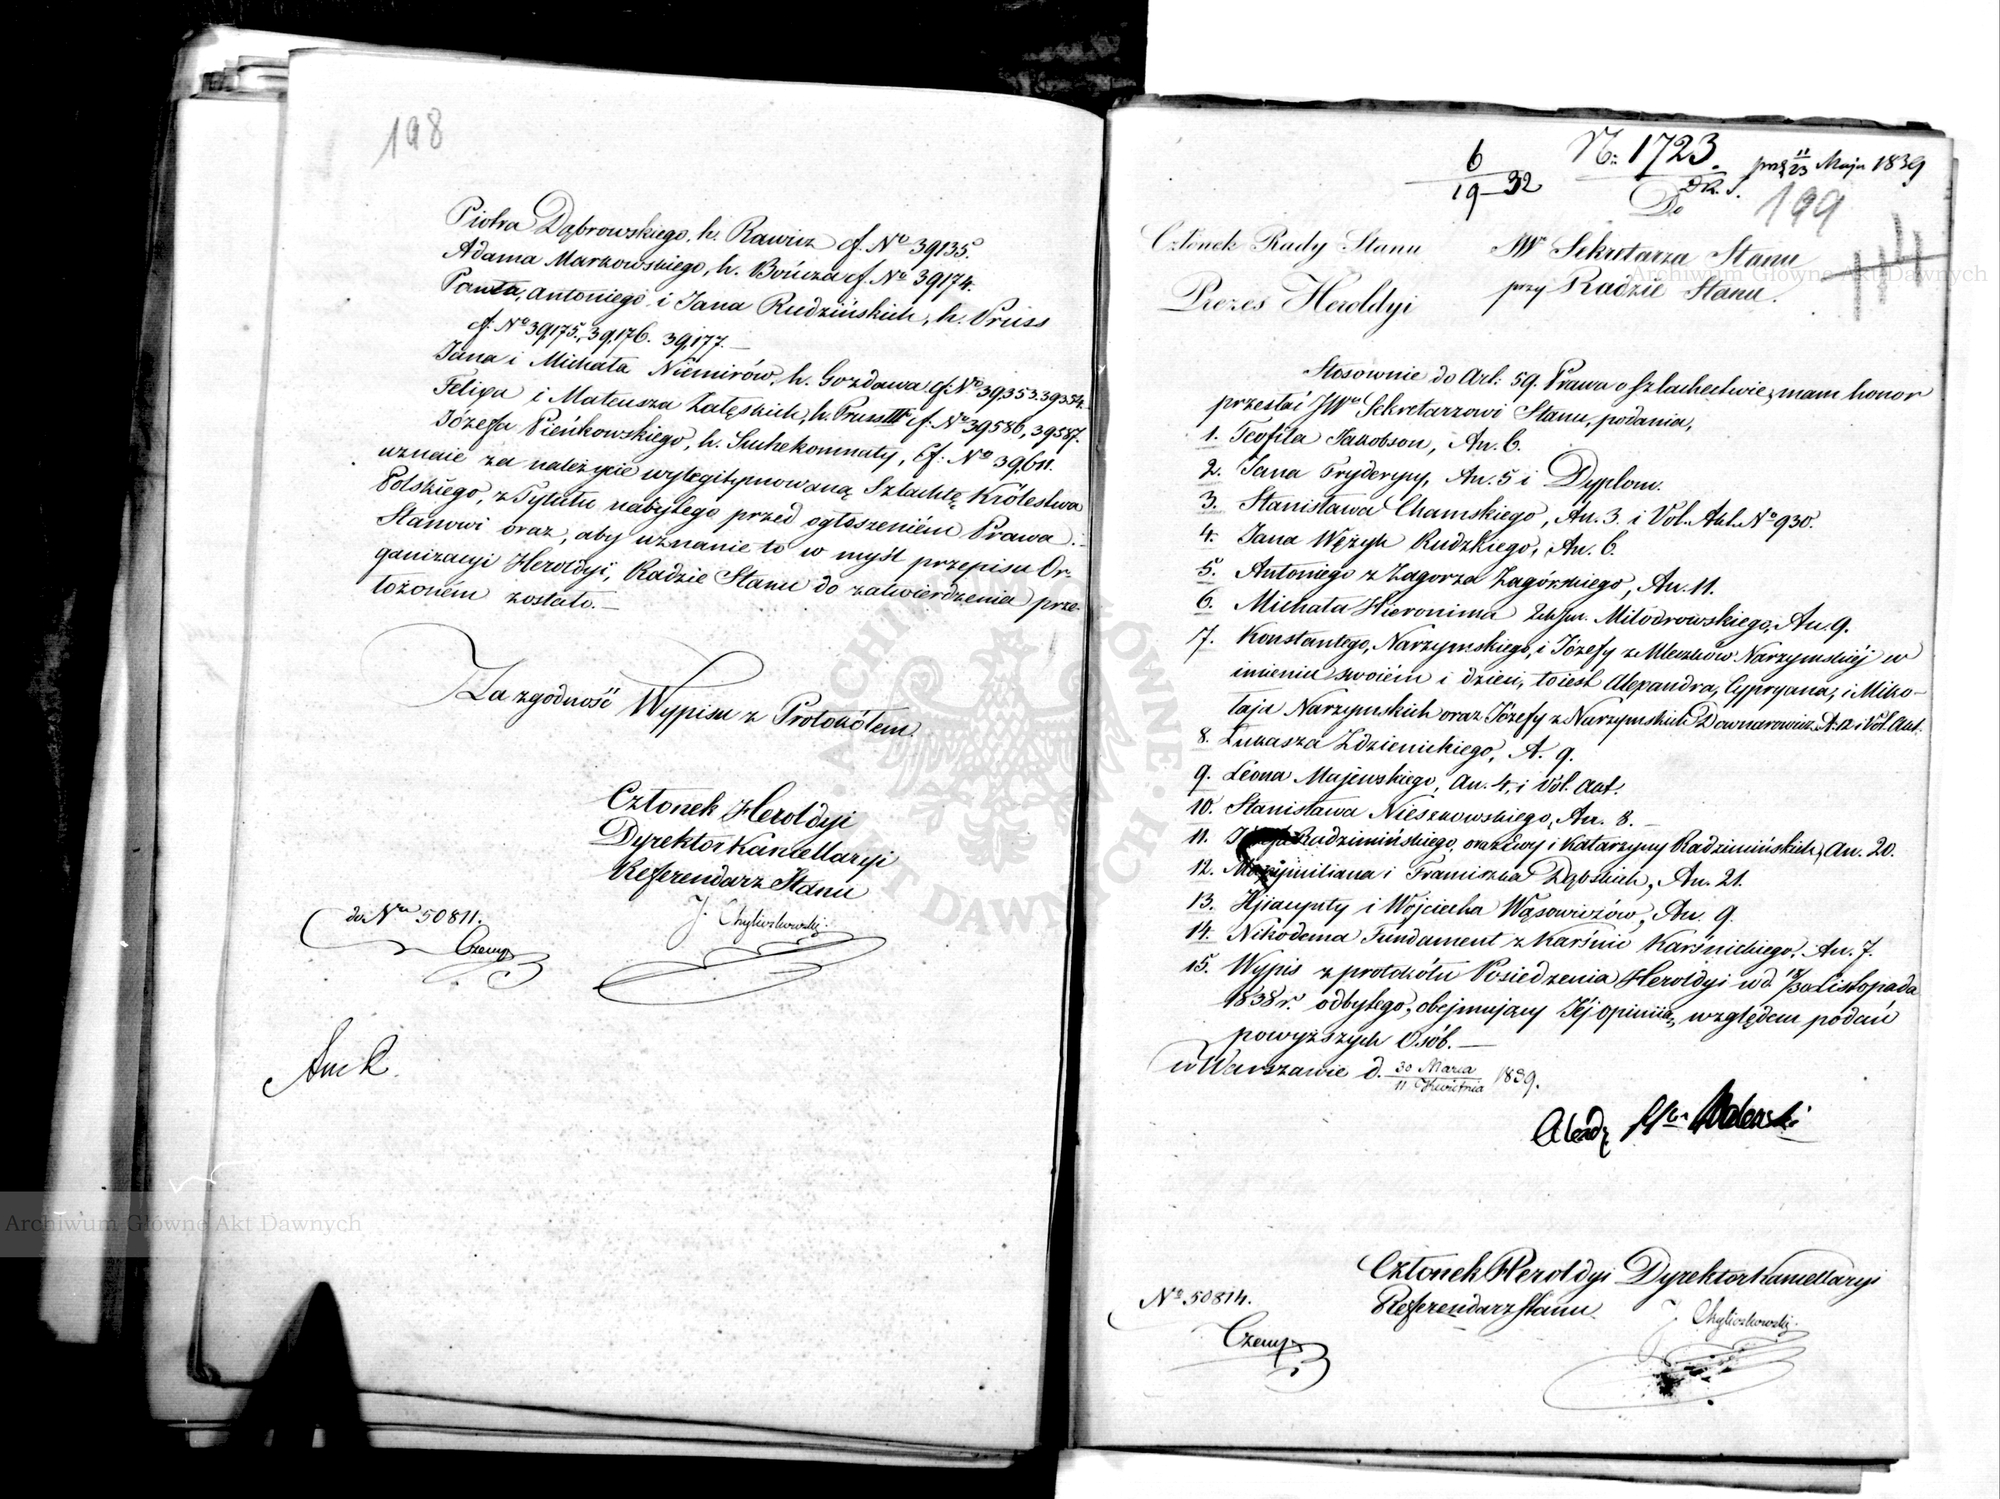 198
Piotra Dąbrowskiego, h. Rawicz cf. No 39135.
Adama Markowskiego, h. Bończa cf. No 39174.
Pawła, Antoniego i Jana Rudzińskich, h. Pruss
cf. No 39175, 39176. 39177.—
Jana i Michała Niemirów, h. Gozdawa cf. No 39353. 39354.
Felixa i Mateusza Załęskich, h. Pruss III cf. No 39586, 39587.
Józefa Pieńkowskiego, h. Suchekomnaty, cf. No 39611.
uznaie za należycie wylegitymowaną Szlachtę Królestwa
Polskiego, z Tytułu nabytego przed ogłoszeniem Prawa.
Stanowi oraz, aby uznanie to w myśl przepisu Or-
ganizacyi Heroldyi, Radzie Stanu do zatwierdzenia prze-
łożoném zostało.—
Za zgodność Wypisu z Protokółem
Członek Heroldyi
Dyrektor Kancellaryi
Referendarz Stanu
J. Chyliczkowski.
do No 50811.
Czemp
6
19—32
N: 1723.
DR. S.
11
23 Maja 1839
199
Do
Członek Rady Stanu
Prezes Heroldyi
JW Sekretarza Stanu
przy Radzie Stanu.
Stosownie do Art: 59. Prawa o Szlachectwie, mam honor
przesłać JWu Sekretarzowi Stanu, podania,
1. Teofila Jakobson, An. 6.
2. Jana Fryderycy, An. 5 i Dyplom.
3. Stanisława Chamskiego, An. 3. i Vol. Aut. No 930.
4. Jana Wężyk Rudzkiego, An. 6.
5. Antoniego z Zagorza Zagórskiego, An. 11.
6. Michała Hieronima Miłodrowskiego, An. 9.
7. Konstantego, Narzymskiego, i Józefy z Mleczków Narzymskiéj w
imieniu swoiém i dzieci, toiest Alexandra, Cypryana, i Miko-
łaja Narzymskich oraz Józefy z Narzymskich Downarowicz A. 12 i Vol. Aut.
8. Łukasza Zdzienickiego, A. 9.
9. Leona Majewskiego, An. 4, i Vol. Aut.
10. Stanisława Nieszkowskiego, An. 8.—
11. Józefa Radzimińskiego, oraz Ewy i Katarzyny Radzimińskich, An. 20.
12. Maxymiliana i Franciszka Dąbskich, An. 21.
13. Hyacynty i Wojciecha Wąsowiczów, An. 9.
14. Nikodema Fundament z Karśnic Karśnickiego. An. 7.
15. Wypis z protokółu Posiedzenia Heroldyi w d 18/30 Listopada
1838 r. odbytego, obejmujący Jéj opiniią, względem podań
powyższych Osób.—
w Warszawie d. 30 Marca / 11 Kwietnia 1839.
Członek Heroldyi Dyrektor Kancellaryi
Referendarz Stanu
J. Chyliczkowski.
No 50814.
Czemp
Archiwum Główne Akt Dawnych
Archiwum Główne Akt Dawnych
ARCHIWUM GŁÓWNE AKT DAWNYCH